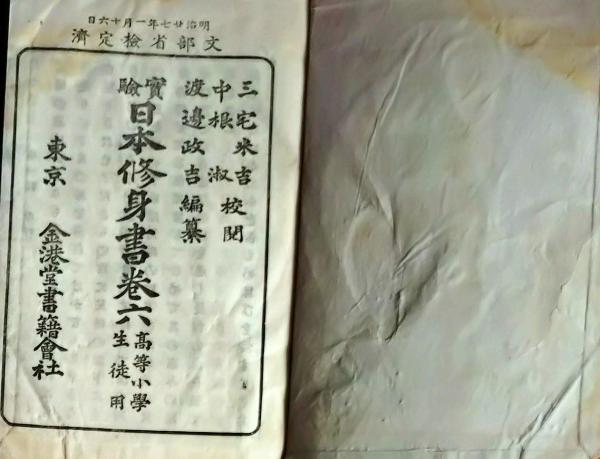 明治廿七年一月十六日
文部省檢定濟
三宅米吉
中根淑
校閲
渡邊政吉編纂
實驗
日本修身書卷六
高等小學
生徒用
東京 金港堂書籍會社